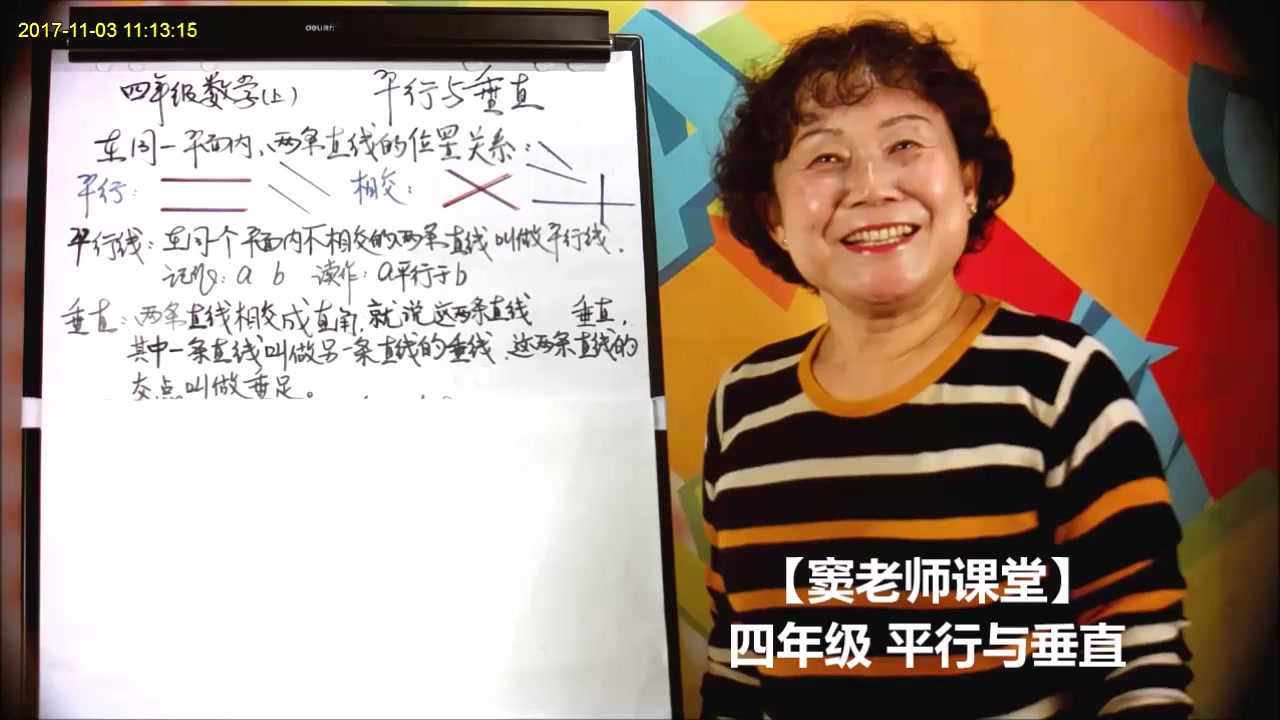 2017-11-03 11:13:15
deli 得力
四年级数学(上) 平行与垂直
在同一平面内、两条直线的位置关系:
平行: 相交:
平行线:在同个平面内不相交的两条直线叫做平行线.
记作: a b 读作: a平行于b
垂直:两条直线相交成直角,就说这两条直线 垂直,
其中一条直线叫做另一条直线的垂线.这两条直线的
交点叫做垂足。
【窦老师课堂】
四年级 平行与垂直